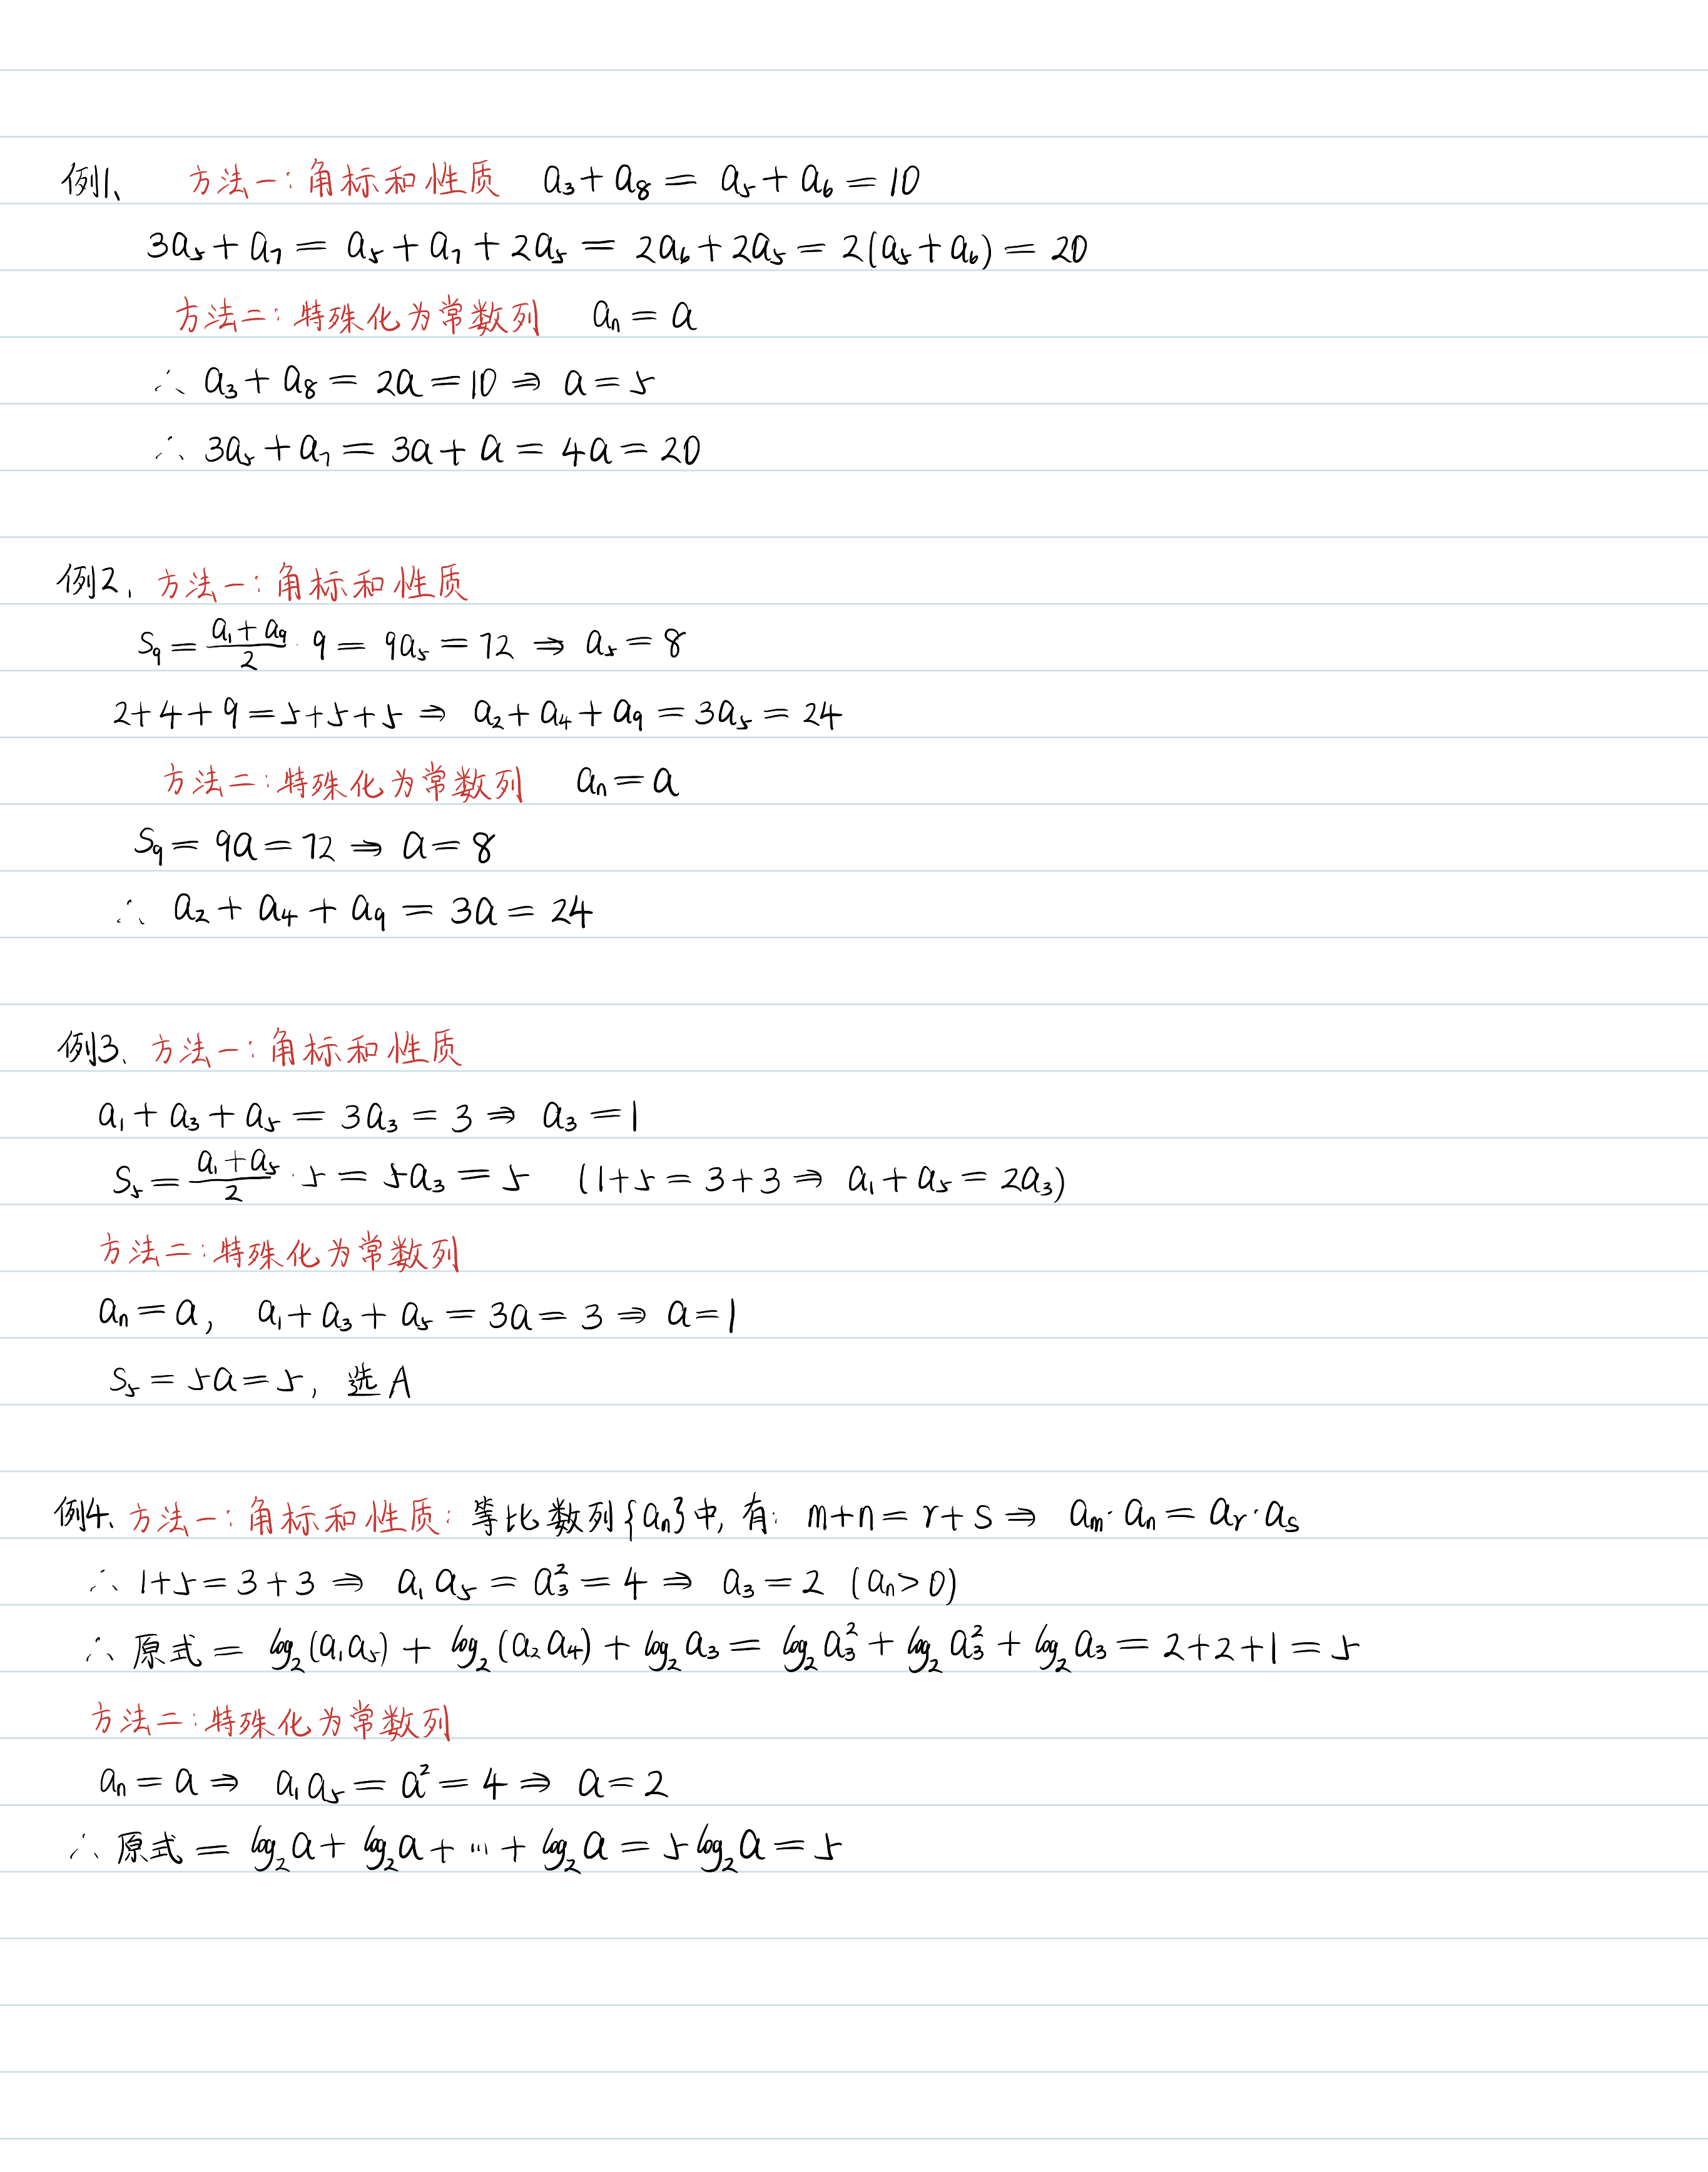 例1、 方法一：角标和性质 a₃+a₈ = a₅+a₆ = 10
3a₅+a₇ = a₅+a₇+2a₅ = 2a₆+2a₅ = 2(a₅+a₆) = 20
方法二：特殊化为常数列 aₙ = a
∴ a₃+a₈ = 2a = 10 ⇒ a = 5
∴ 3a₅+a₇ = 3a+a = 4a = 20
例2、方法一：角标和性质
S₉ = \frac{a₁+a₉}{2}·9 = 9a₅ = 72 ⇒ a₅ = 8
2+4+9 = 5+5+5 ⇒ a₂+a₄+a₉ = 3a₅ = 24
方法二：特殊化为常数列 aₙ = a
S₉ = 9a = 72 ⇒ a = 8
∴ a₂+a₄+a₉ = 3a = 24
例3、方法一：角标和性质
a₁+a₃+a₅ = 3a₃ = 3 ⇒ a₃ = 1
S₅ = \frac{a₁+a₅}{2}·5 = 5a₃ = 5 (1+5 = 3+3 ⇒ a₁+a₅ = 2a₃)
方法二：特殊化为常数列
aₙ = a, a₁+a₃+a₅ = 3a = 3 ⇒ a = 1
S₅ = 5a = 5, 选A
例4、方法一：角标和性质：等比数列{aₙ}中, 有: m+n = r+s ⇒ aₘ·aₙ = aᵣ·aₛ
∴ 1+5 = 3+3 ⇒ a₁a₅ = a₃² = 4 ⇒ a₃ = 2 (aₙ>0)
∴ 原式 = log₂(a₁a₅) + log₂(a₂a₄) + log₂a₃ = log₂a₃² + log₂a₃² + log₂a₃ = 2+2+1 = 5
方法二：特殊化为常数列
aₙ = a ⇒ a₁a₅ = a² = 4 ⇒ a = 2
∴ 原式 = log₂a + log₂a + ··· + log₂a = 5log₂a = 5